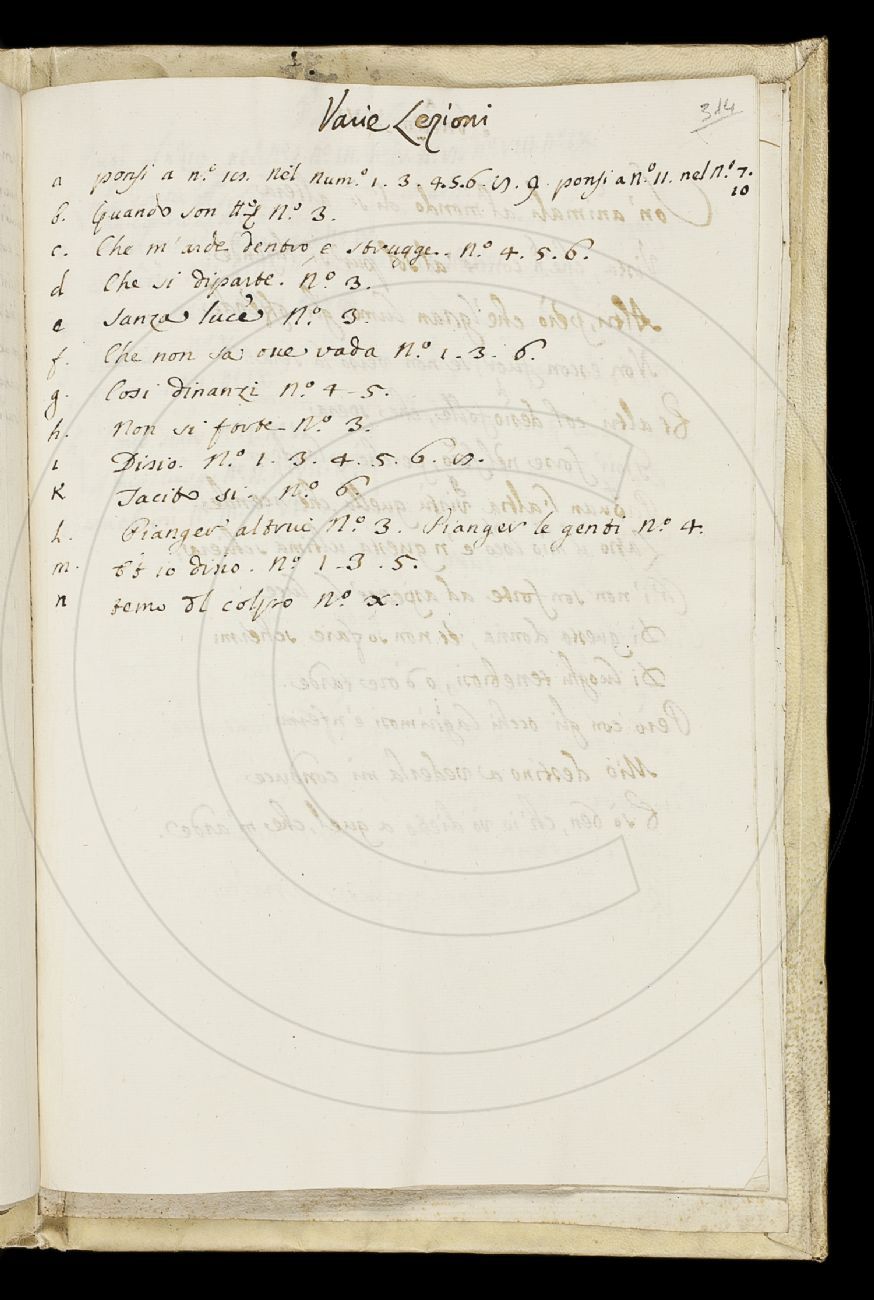 Varie Lezioni
314
a ponsi a n.º 19. nel num.º 1. 3. 4. 5. 6. 19. 9. ponsi a N.º 11. nel N.º 7. 10
b. Quando son N.º 3.
c. Che m'arde dentro e strugge. N.º 4. 5. 6.
d Che si diparte. N.º 3.
e Sanza luce N.º 3.
f. Che non sa oue vada N.º 1. 3. 6.
g. Cosi dinanzi N.º 4. 5.
h. Non si forte N.º 3.
i Disio. N.º 1. 3. 4. 5. 6. 19.
K Tacito si. N.º 6.
l. Pianger altrui N.º 3. Pianger le genti N.º 4.
m. io disio. N.º 1. 3. 5.
n temo colpo N.º x.